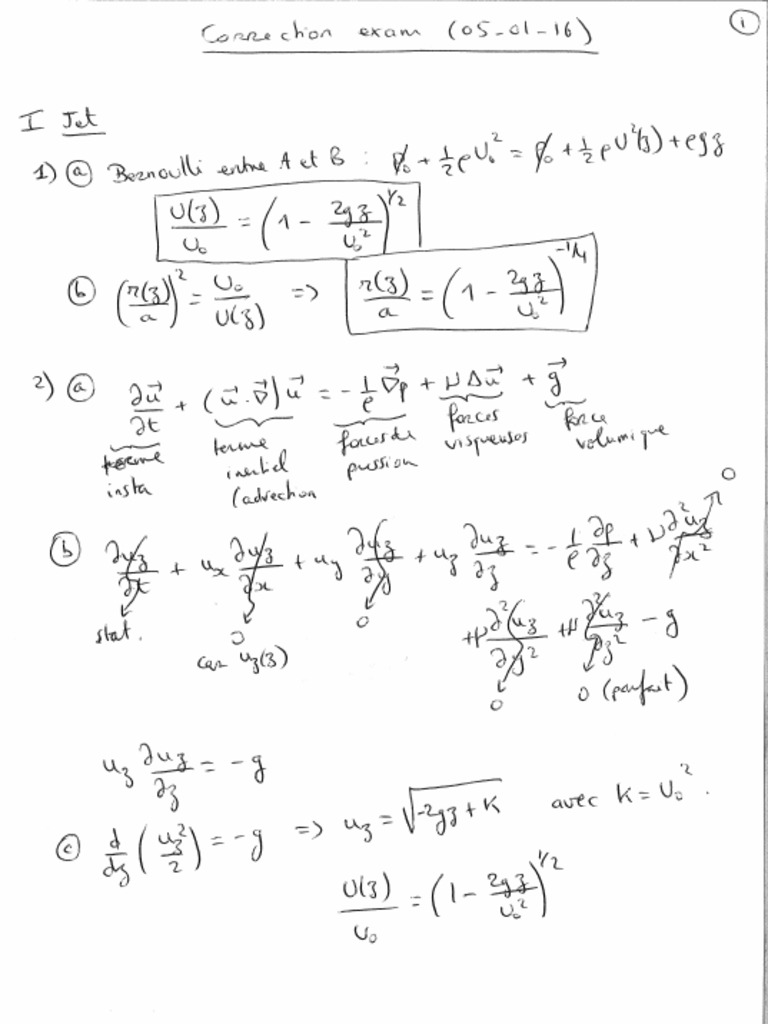 1
Correction exam (05-01-16)
I Jet
1) (a) Bernoulli entre A et B : p₀ + 1/2 ρU₀² = p₀ + 1/2 ρU²(z) + ρgz
U(z)/U₀ = (1 - 2gz/U₀²)^1/2
(b) (r(z)/a)² = U₀/U(z) => r(z)/a = (1 - 2gz/U₀²)^-1/4
2) (a) ∂u⃗/∂t + (u⃗.∇⃗)u⃗ = -1/ρ ∇⃗p + νΔu⃗ + g⃗
terme insta
terme inertiel (advection
forces de pression
forces visqueuses
force volumique
(b) ∂u_z/∂t + u_x ∂u_z/∂x + u_y ∂u_z/∂y + u_z ∂u_z/∂z = -1/ρ ∂p/∂z + ν ∂²u_z/∂x² 0
stat. 0 0
car u_z(z)
+ν ∂²u_z/∂y² +ν ∂²u_z/∂z² - g
0 0 (parfait)
u_z ∂u_z/∂z = -g
(c) d/dz (u_z²/2) = -g => u_z = √(-2gz + K) avec K = U₀².
U(z)/U₀ = (1 - 2gz/U₀²)^1/2